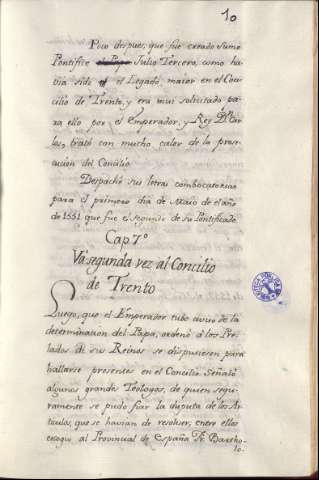 10
Poco despues, que fue creado Sumo
Pontifice el Papa Julio Tercero, como ha-
via sido el Legado, maior en el Con-
cilio de Trento, y era mui solicitado pa-
ra ello por el Emperador, y Rey Dn. Car-
los, trató con mucho calor de la prose-
cucion del Concilio.
Despachó sus letras combocatorias
para el primero dia de Maio de el año
de 1551 que fue el segundo de su Pontificado.
Cap 7º
Vá segunda vez al Concilio
de Trento
Luego, que el Emperador tubo aviso de la
determinacion del Papa, ordenó á los Pre-
lados de sus Reinos se dispusiesen para
hallarse presentes en el Concilio. Señaló
algunos grande Teologos, de quien segu-
ramente se pudo fiar la disputa de los Ar-
ticulos, que se havian de resolver; entre ellos
escogio al Provincial de España Fr. Bartho-
lo.